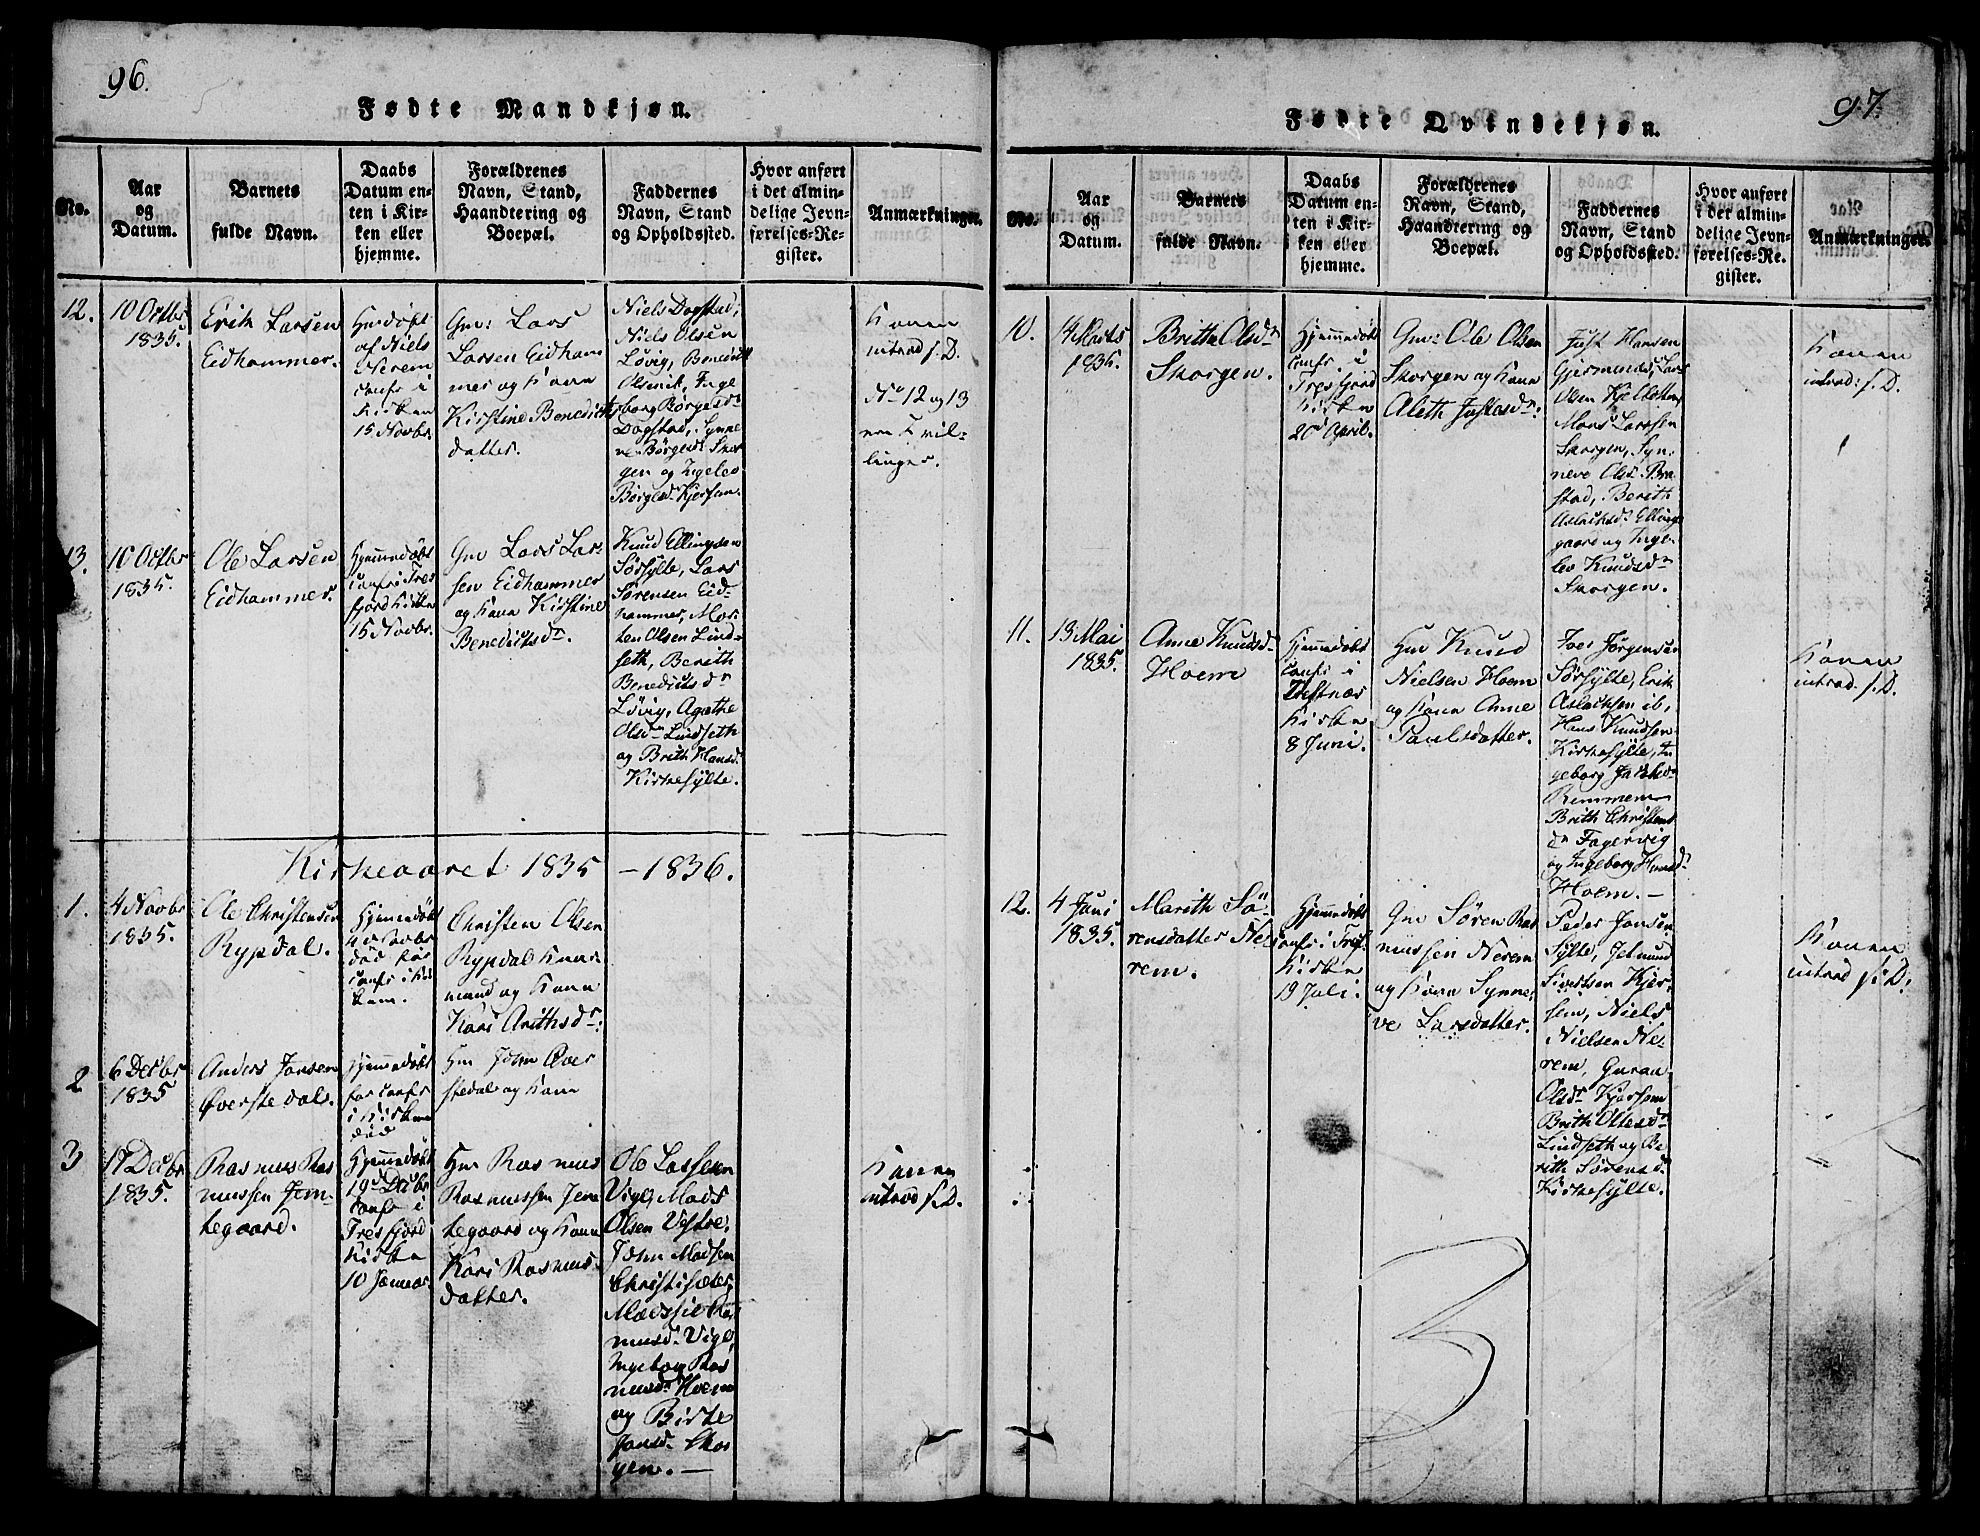 96.
Fødte Mandkjøn.
No.
Aar
og
Datum.
Barnets
fulde Navn.
Daabs
Datum en-
ten i Kir-
ken eller
hjemme.
Forældrenes
Navn, Stand,
Haandtering og
Boepæl.
Faddernes
Navn, Stand
og Opholdssted.
Hvor anført
i det almin-
delige Jevn-
førelses-Re-
gister.
Anmærkninger.
12.
10 Octbr
1835.
Erik Larsen
Eidhammer.
Hmdøbt
af Niels
Nerem
confr i
Kirken
15 Novbr.
Gm: Lars
Larsen Eidham
mer og Kone
Kirstine Benedicts
datter.
Niels Dogstad,
Niels Olsen
Løvig, Benedict
Olsvik, Inge
borg Børgesdr
Dogstad, Synne
ve Børgesdr Skor
gen og Ingelev
Børgesdr Kjersem.
Konen
introd f. D.
No 12 og 13
ere Tvil-
linger.
13.
10 Octbr
1835.
Ole Larsen
Eidhammer.
Hjemmedøbt
confr i Tres
fjord Kirke
15 Novbr.
Gm Lars Lar
sen Eidhammer
og Kone Kirstine
Benedictsdr.
Knud Ellingsen
Sørsylte, Lars
Sørensen Eid-
hammer, Mor
ten Olsen Lind-
seth, Berith
Benedicts dr
Løvig, Agathe
Olsdr Lindseth
og Brith Hansd.
Kirkesylte.
Kirkeaaret 1835 - 1836.
1.
4 Novbr
1835.
Ole Christensen
Rypdal.
Hjemmedøbt
4 Novbr
død før
confr i Kir
ken.
Christen Olsen
Rypdal Huus
mand og Kone
Kari Arithsdr:
2
6 Decbr
1835
Anders Jonsen
Øverstedal.
Hjemmedøbt
før confr
i Kirken
død
Hm John Øver
stedal og Kone
3
17 Decbr
1835.
Rasmus Ras
mussen Jem-
tegaard.
Hjemmedøbt
19d Decbr
confr i
Tresfjord
Kirke
10 Januar.
Hm Rasmus
Rasmussen Jem
tegaard og Kone
Kari Rasmus
datter.
Ole Lassesen
Vigl, Mads
Olsen Vestre,
John Madsen
Christisæter,
Madssil Ras
musd. Vigl,
Ingeborg Ras
musdr Hoem
og Birte
Jonsd. Skor
gen. —
Konen
introd f. D.
97.
Fødte Qvindekjøn.
No.
Aar
og
Datum.
Barnets
fulde Navn.
Daabs
Datum en-
ten i Kir-
ken eller
hjemme.
Forældrenes
Navn, Stand,
Haandtering og
Boepæl.
Faddernes
Navn, Stand
og Opholdssted.
Hvor anført
i det almin-
delige Jevn-
førelses-Re-
gister.
Anmærkninger.
10.
4 Marts
1835.
Britha Olsdr
Skorgen.
Hjemmedøbt
confr i
Tresfjord
Kirke
20d April.
Gm: Ole Olsen
Skorgen og Kone
Aleth Justasdr:
Just Hansen
Gjermundnes, Lars
Olsen Kjeldstad,
Mons Larssen
Skorgen, Syn-
neve Olsdr Bra
stad, Berith
Aslaksdr Ellings
gaard og Inge-
lev Knudsdr
Skorgen.
Konen
introd: f. D.
11.
13 Mai
1835.
Anne Knudsd.
Hoem
Hjemmedøbt
confr i
Vestnæs
Kirke
8 Juni.
Hm Knud
Nielsen Hoem
og Kone Anne
Paulsdatter.
Iver Jørgensen
Sørsylte, Erik
Aslacksen ib,
Hans Knudsen
Kirkesylte, In
geborg Jakobsdr
Remmem
Brith Christens
dr Fagervig
og Ingeborg Knudsd.
Hoem. —
Konen
introd. f. D.
12.
4 Juni
1835.
Marith Sø-
rensdatter Ne
rem.
Hjemmedøbt
confr i Tresf.
Kirke
19 Juli.
Gm Søren Ras
mussen Nerem
og Kone Synne-
ve Larsdatter.
Peder Jonsen
Sylte, Jetmund
Sivertsen Kjer-
sem, Niels
Nielsen Ne-
rem, Guran
Olsdr Kjersem
Brith Oltesdr
Lindseth og Be
rith Sørensd.
Kirkesylte.
Konen
introd f: D: